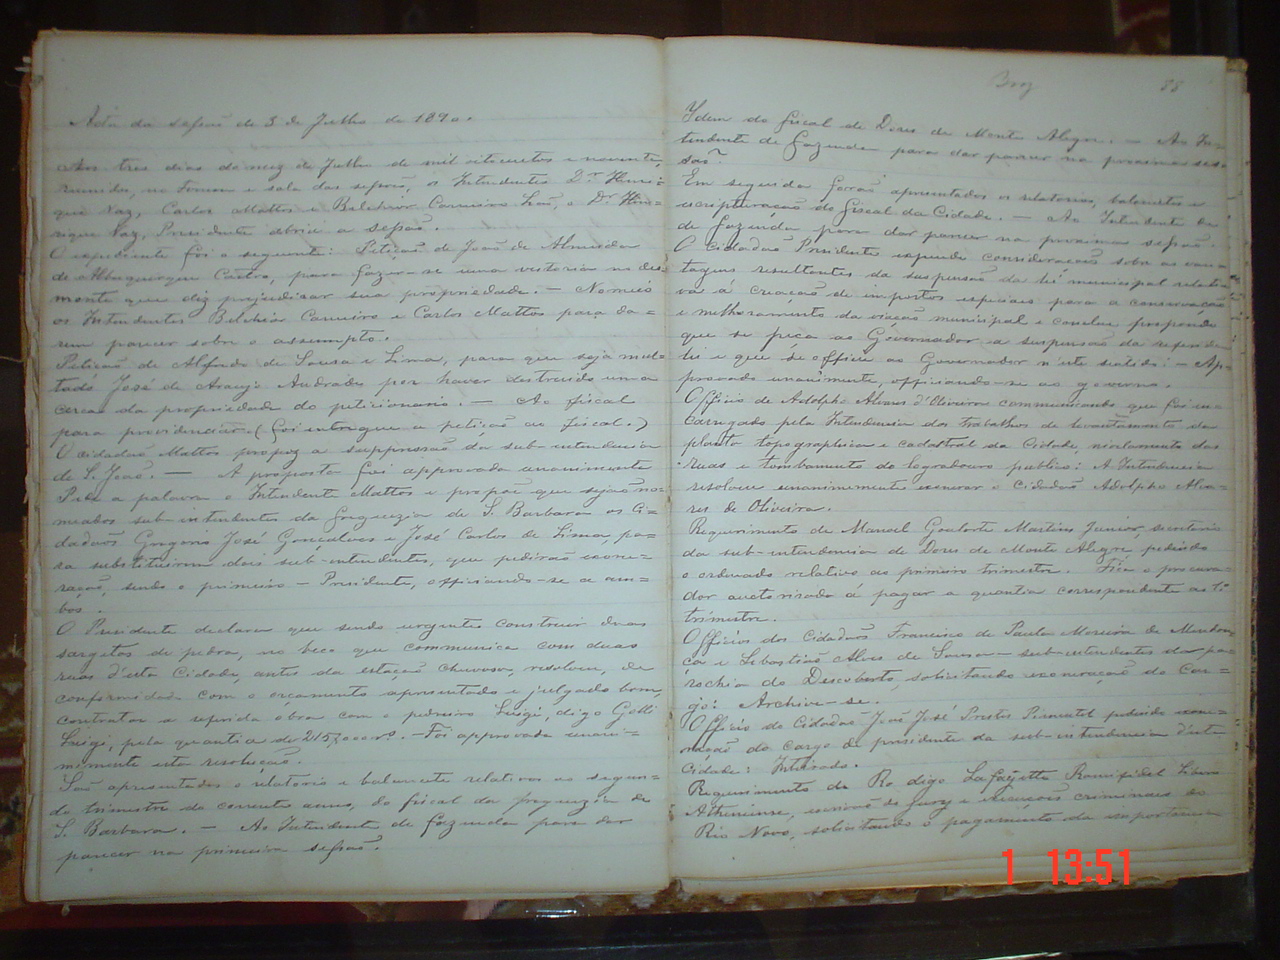 Acta da sessão de 3 de Julho de 1890.
Aos tres dias do mez de Julho de mil oitocentos e noventa,
reunidos, no Forum e sala das sessões, os Intendentes Dr. Henri=
que Vaz, Carlos Mattos e Belchior Carneiro Leão, o Dr. Hen=
rique Vaz, Presidente abriu a sessão.
O expediente foi o seguinte: Petição de João de Almeida
de Albuquerque Castro, para fazer-se uma vistoria no des=
monte que diz prejudicar sua propriedade. — Nomeio
os Intendentes Belchior Carneiro e Carlos Mattos para da=
rem parecer sobre o assumpto.
Petição de Alfredo de Sousa e Lima, para que seja mul=
tado José de Araujo Andrade por haver destruido uma
cerca da propriedade do peticionario. — Ao fiscal
para providenciar. (Foi entregue a petição ao fiscal.)
O cidadão Mattos propoz a suppressão da sub-intendencia
de S. João. — A proposta foi approvada unanimente
Pede a palavra o Intendente Mattos e propõe que sejão no=
meados sub-intendentes da freguezia de S. Barbara os Ci=
dadãos Gregorio José Gonçalves e José Carlos de Lima, pa=
ra substituirem dois sub-intendentes, que pedirão exone=
ração, sendo o primeiro — Presidente, officiando-se a am=
bos.
O Presidente declara que sendo urgente construir duas
sargetas de pedra, no beco que communica com duas
ruas d'esta Cidade, antes da estação chuvosa, resolveu, de
conformidade com o orçamento apresentado e julgado bom,
contratar a referida obra com o pedreiro Luigi, digo Gelli
Luigi, pela quantia de 215$000rs. — Foi approvada unani=
mimente esta resolução.
São apresentados o relatorio e balancete relativos ao segun=
do trimestre do corrente anno, do fiscal da freguezia de
S. Barbara. — Ao Intendente de fazenda para dar
parecer na primeira sessão.
88
Idem do fiscal de Dores de Monte Alegre. — Ao In=
tendente de fazenda para dar parecer na proxima ses=
são.
Em seguida forão apresentados os relatorios, balancetes e
escripturação do fiscal da Cidade. — Ao Intendente
de fazenda para dar parecer na proxima sessão.
O Cidadão Presidente expende considerações sobre as van=
tagens resultantes da suspensão da lei municipal relati=
va á creação de impostos especiais para a conservação
e melhoramento da viação municipal e conclue propondo
que se peça ao Governador a suspensão da referida
lei e que se officie ao Governador n'este sentido: — Ap=
provado unanimente, officiando-se ao governo.
Officio de Adolpho Alvares d'Oliveira communicando que foi en=
carregado pela Intendencia dos trabalhos de levantamento da
planta topographica e cadastral da Cidade, nivelamento das
ruas e tombamento do logradouro publico: A Intendencia
resolveu unanimemente exonerar o Cidadão Adolpho Alva=
res de Oliveira.
Requerimento de Manoel Goularte Martins Junior, secretario
da sub-intendencia de Dores de Monte Alegre, pedindo
o ordenado relativo ao primeiro trimestre. Fica o procura=
dor auctorisado á pagar a quantia correspondente ao 1º
trimestre.
Officios dos Cidadãos Francisco de Paula Moreira de Mendon=
ça e Sebastião Alves de Sousa — sub-intendentes da pa=
rochia do Descoberto, solicitando exoneração do Car=
go: Archive-se.
Officio do Cidadão João José Prestes Pimentel pedindo exone=
ração do cargo de presidente da sub-intendencia d'esta
Cidade: Inteirado.
Requerimento de Ro digo Lafayette Ramifidel Libero
Atheniense, escrivão de jury e execuções criminaes do
Rio Novo, solicitando o pagamento da importancia
1 13:51